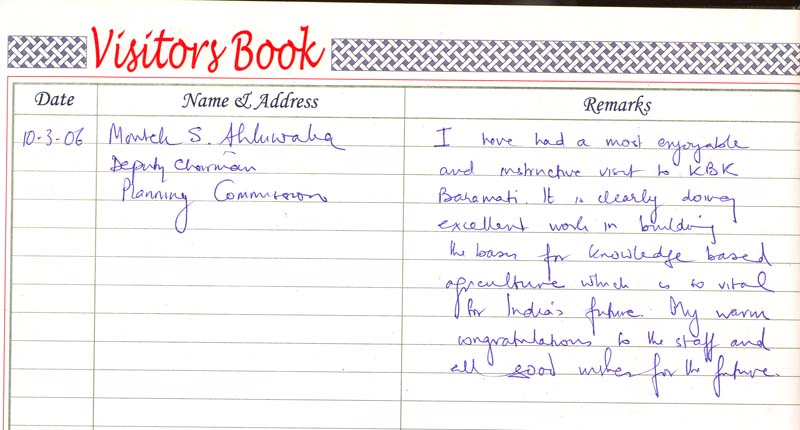 Visitors Book
Date Name & Address Remarks
10-3-06 Montek S. Ahluwalia I have had a most enjoyable
Deputy Chairman and instructive visit to KBK
Planning Commission Baramati. It is clearly doing
excellent work in building
the basis for knowledge based
agriculture which is so vital
for India's future. My warm
congratulations to the staff and
all good wishes for the future.